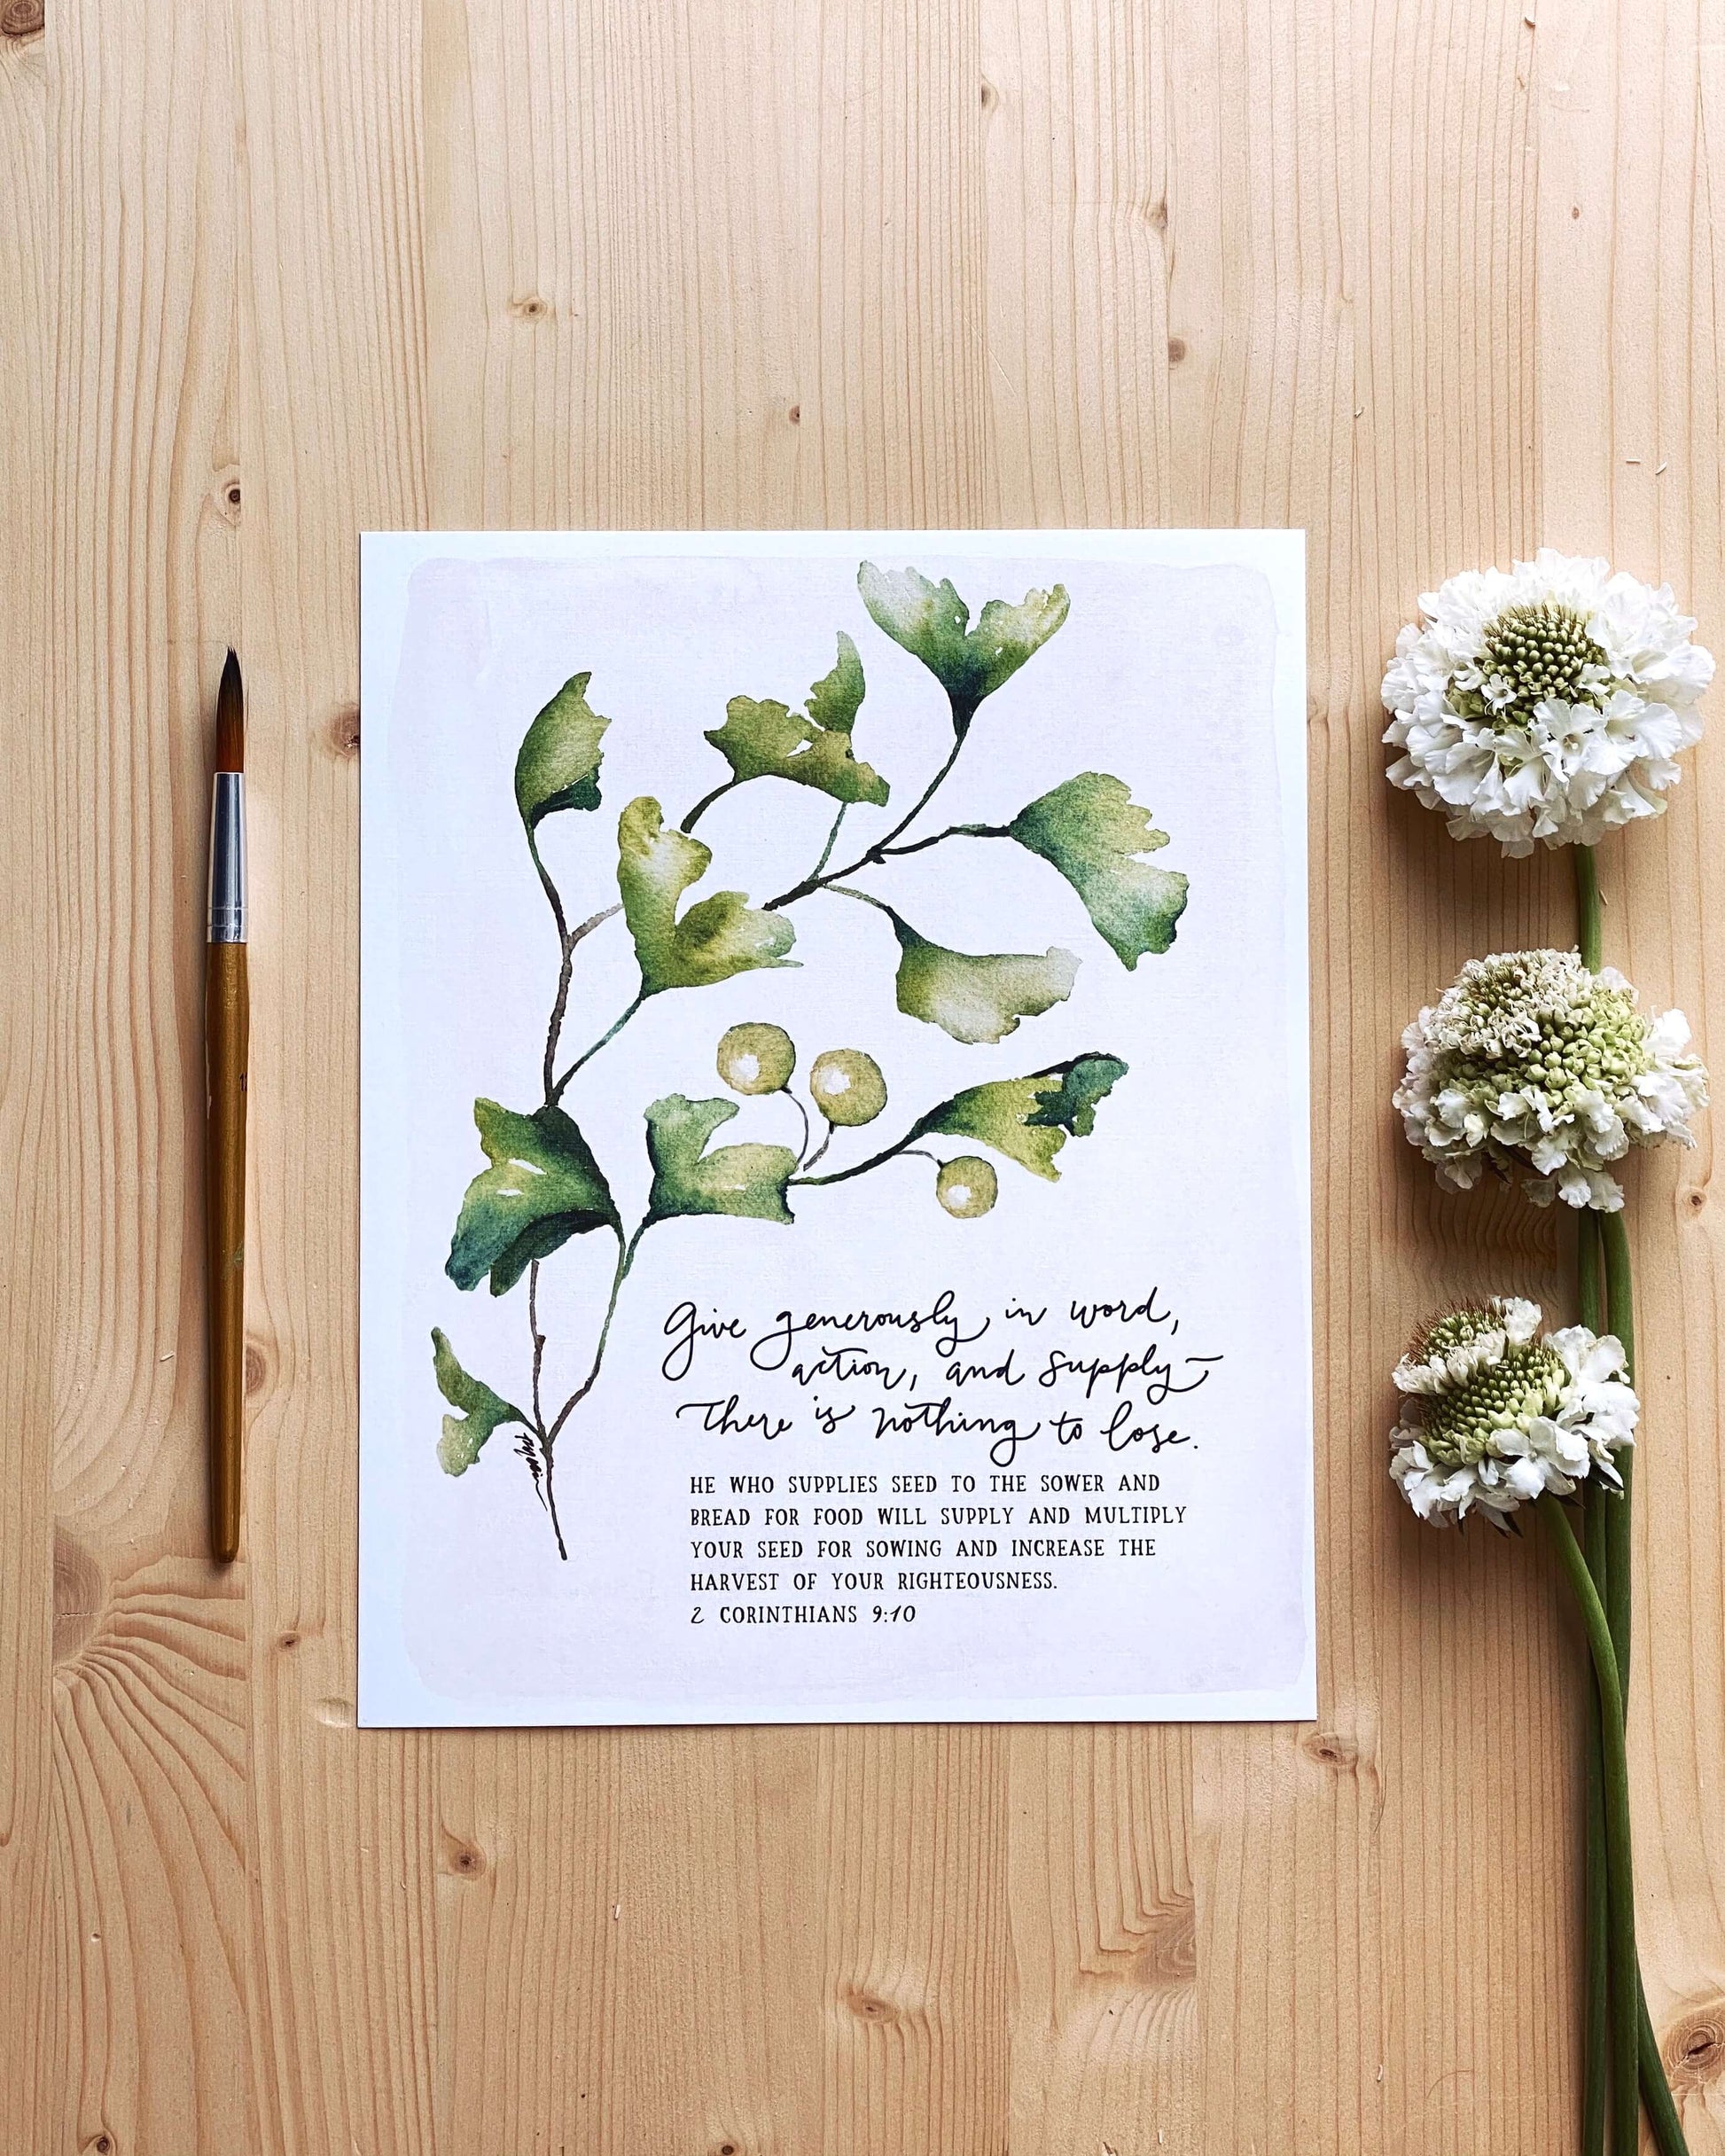 Give generously in word,
action, and supply-
There is nothing to lose.
HE WHO SUPPLIES SEED TO THE SOWER AND
BREAD FOR FOOD WILL SUPPLY AND MULTIPLY
YOUR SEED FOR SOWING AND INCREASE THE
HARVEST OF YOUR RIGHTEOUSNESS.
2 CORINTHIANS 9:10